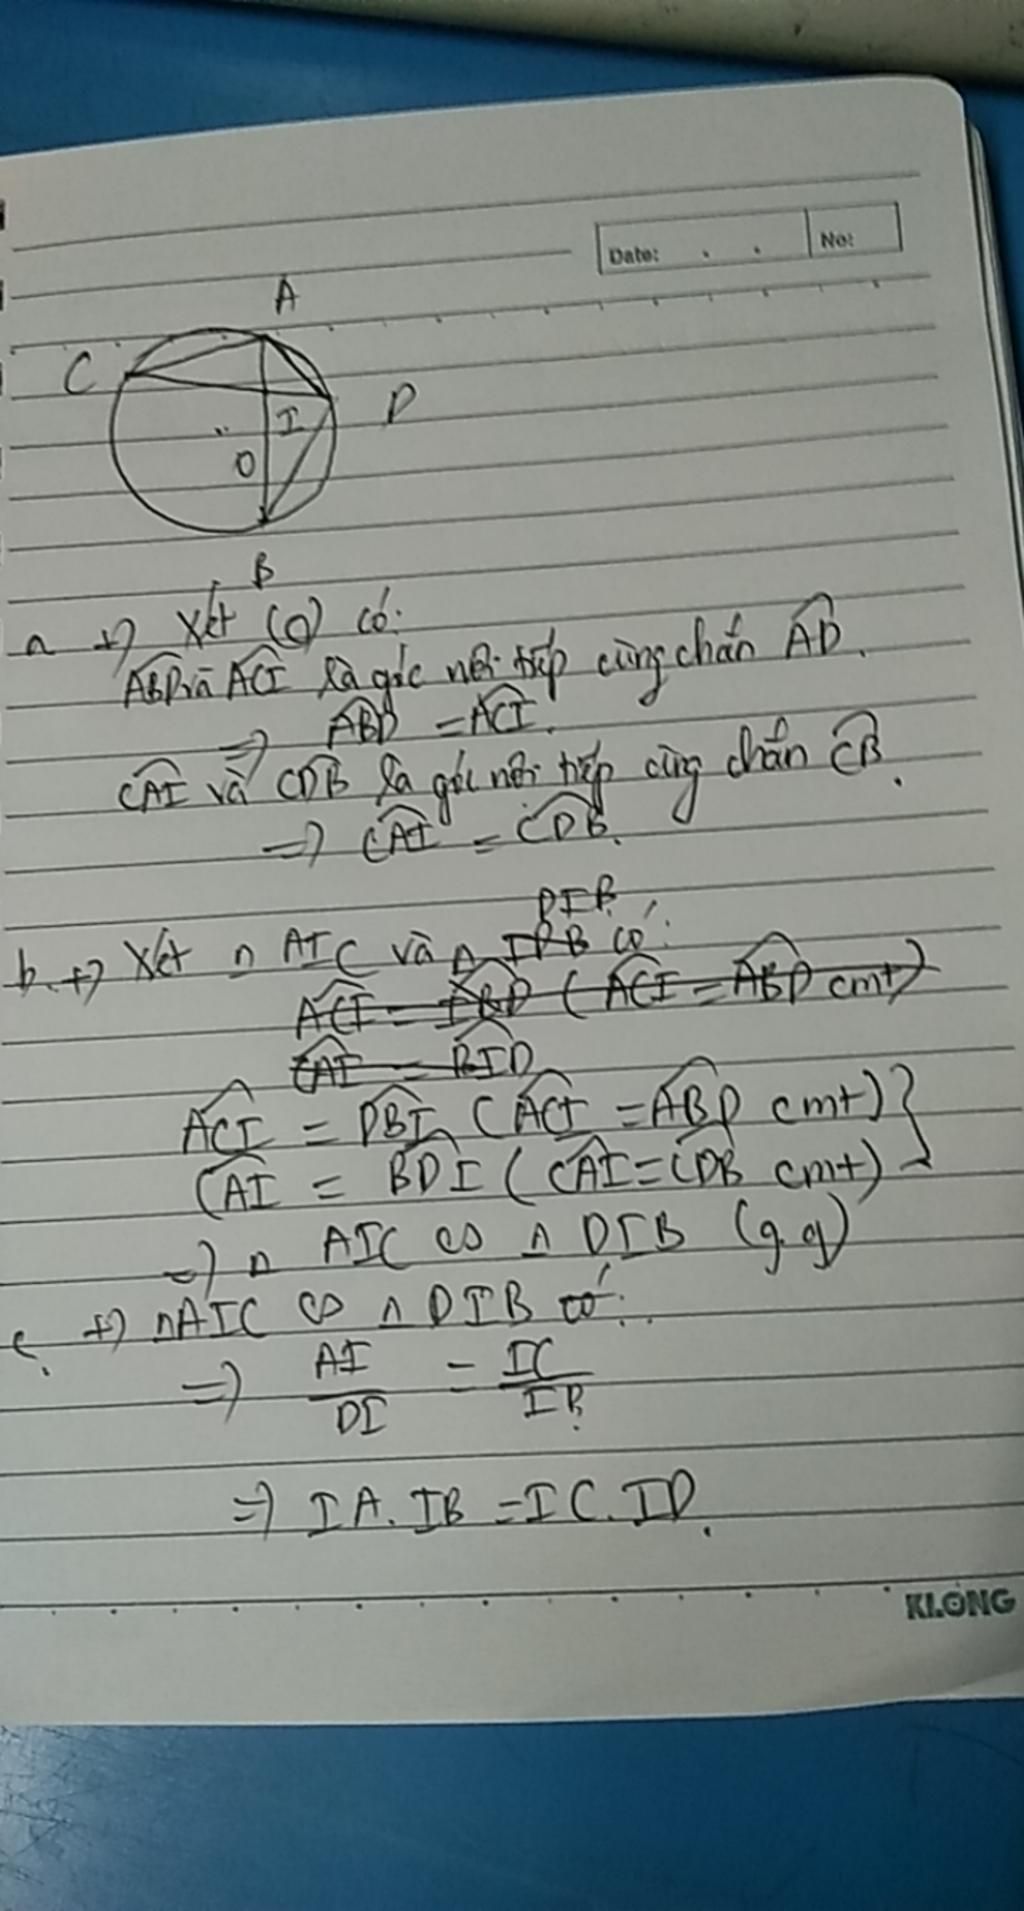 Date: . . No:
A
C
D
I
O
B
a +) Xét (O) có:
ABD và ACI là góc nội tiếp cùng chắn AD.
=> ABD = ACI.
CAI và CDB là góc nội tiếp cùng chắn CB.
=> CAI = CDB.
DIB
b. +) Xét Δ AIC và Δ IDB có:
ACI = IBD (ACI = ABD cmt)
CAI = BID
ACI = DBI (ACI = ABD cmt) }
CAI = BDI (CAI = CDB cmt)
=> Δ AIC ∽ Δ DIB (g.g)
c. +) ΔAIC ∽ Δ DIB có:
=> AI/DI = IC/IB
=> IA.IB = IC.ID.
KLONG